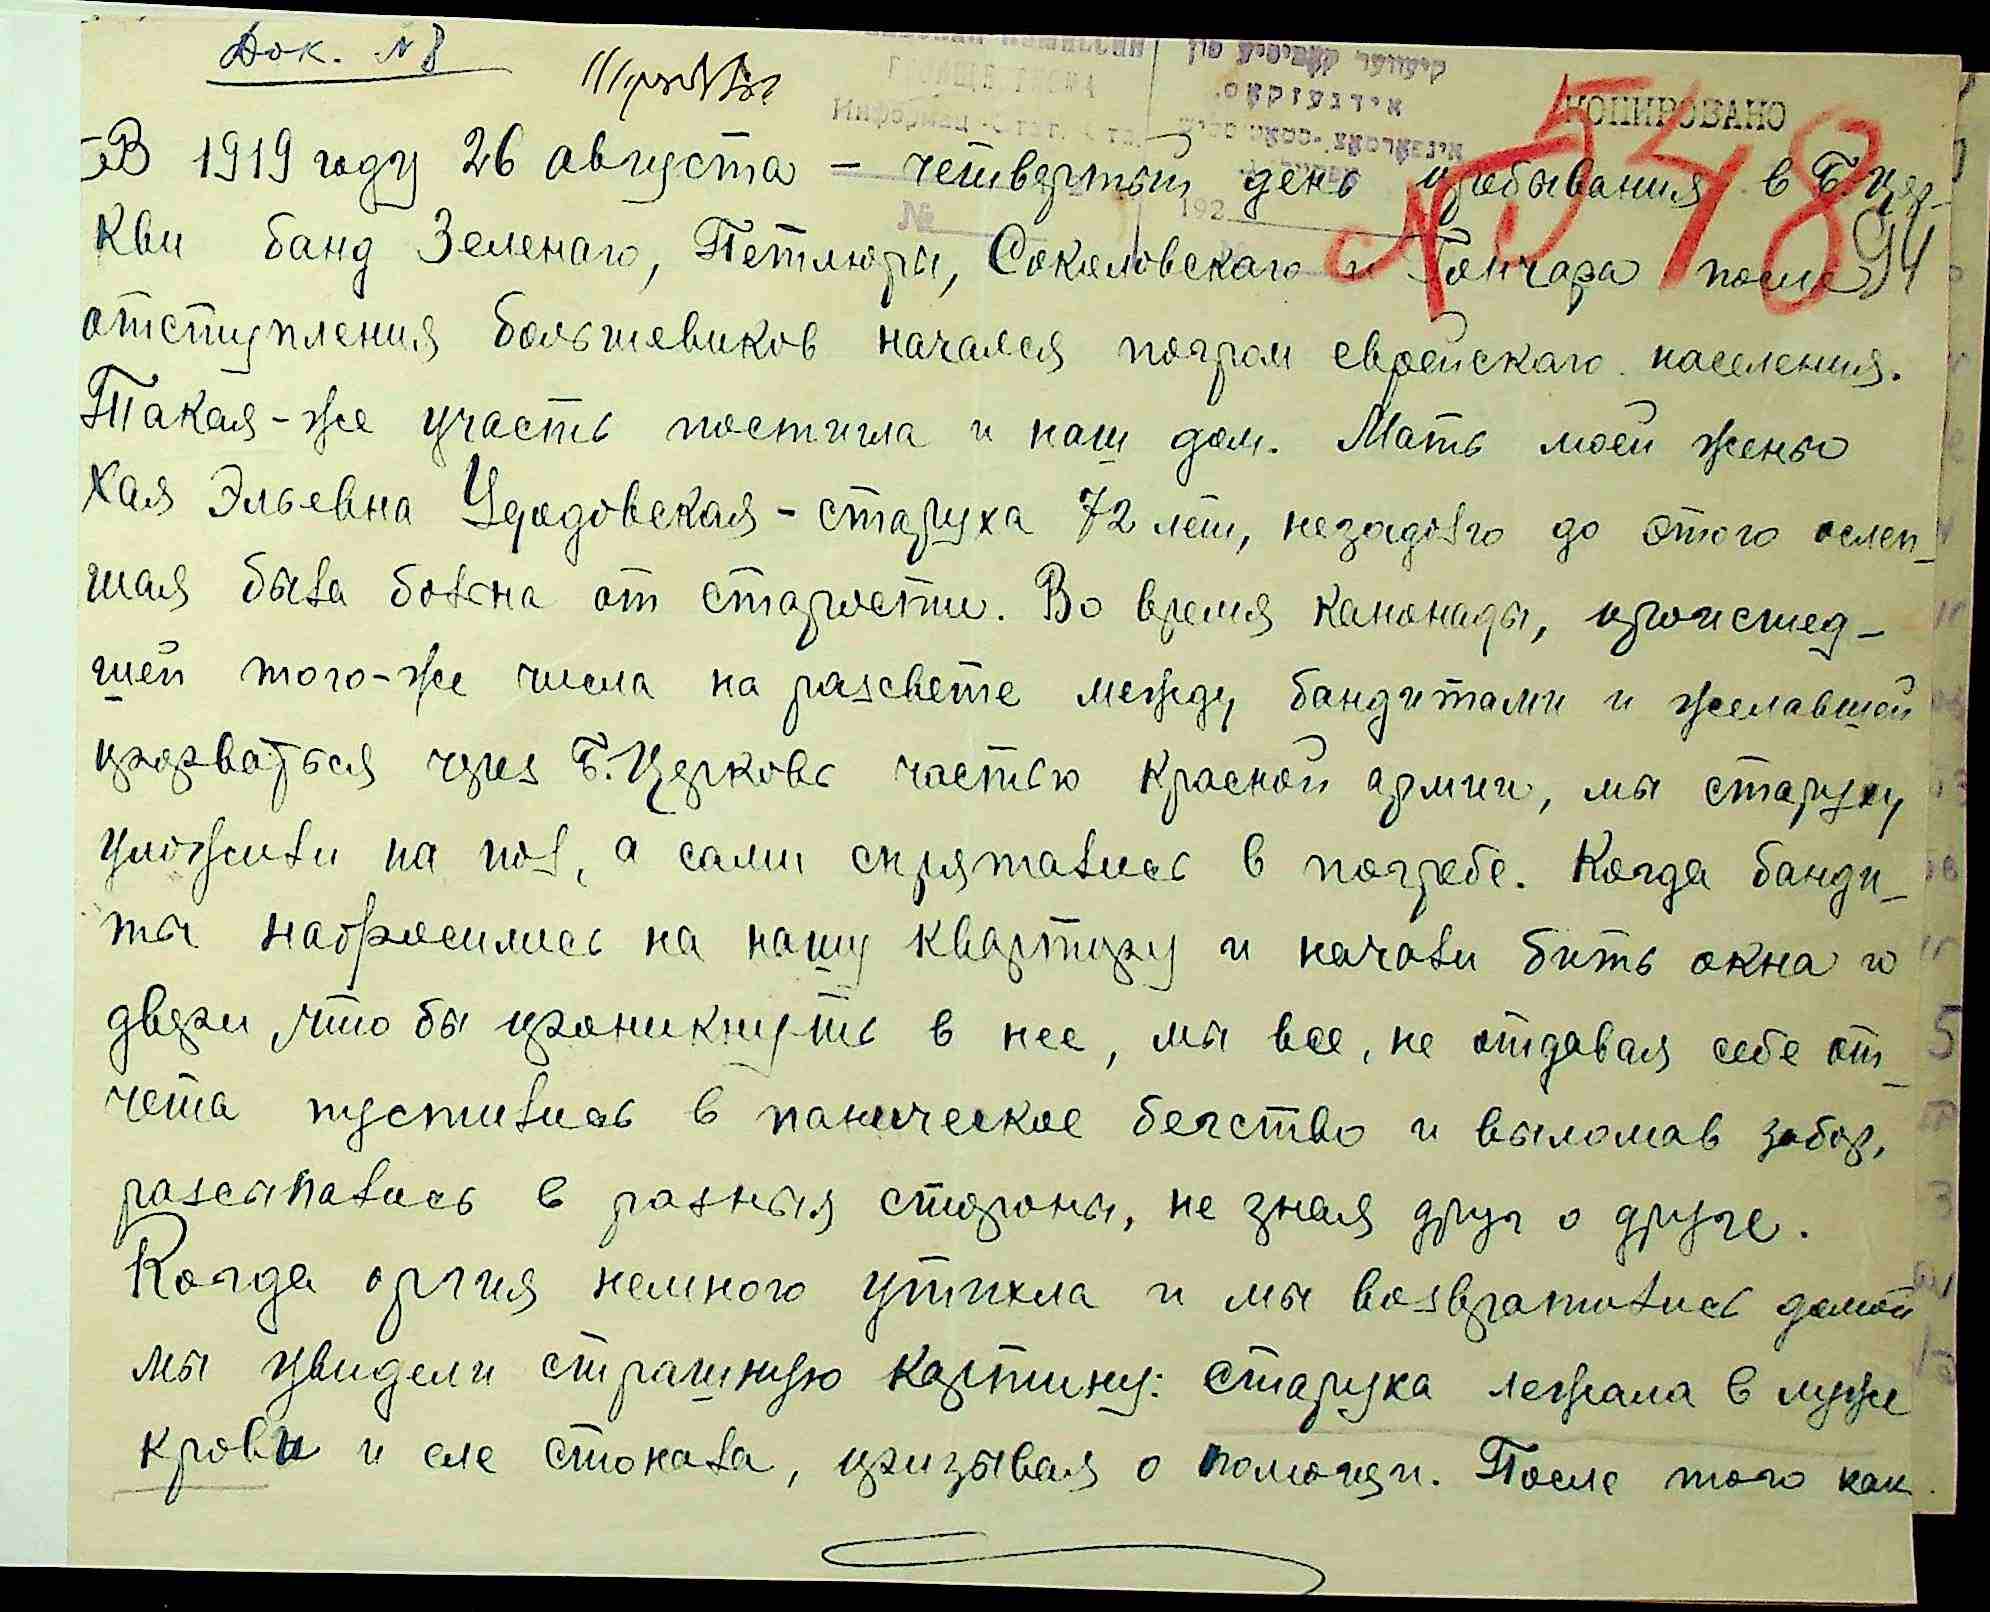 Док. №8
КОПИРОВАНО
№ 548
94
192
№
В 1919 году 26 августа – четвертый день пребывания в Б. Цер-
кви банд Зеленаго, Петлюры, Соколовскаго и Гончара после
отступления большевиков начался погром еврейскаго населения.
Такая-же участь постигла и наш дом. Мать моей жены
Хая Эльевна Удодовская – старуха 72 лет, незадолго до этого ослеп-
шая была больна от старости. Во время канонады, происшед-
шей того-же числа на разсвете между бандитами и желавшей
прорваться через Б. Церковь частью красной армии, мы старуху
уложили на пол, а сами спрятались в погребе. Когда банди-
ты набросились на нашу квартиру и начали бить окна и
двери, что бы проникнуть в нее, мы все, не отдавая себе от-
чета пустились в паническое бегство и выломав забор,
разсыпались в разныя стороны, не зная друг о друге.
Когда оргия немного утихла и мы возвратились домой
мы увидели страшную картину: старуха лежала в луже
крови и еле стонала, призывая о помощи. После того как